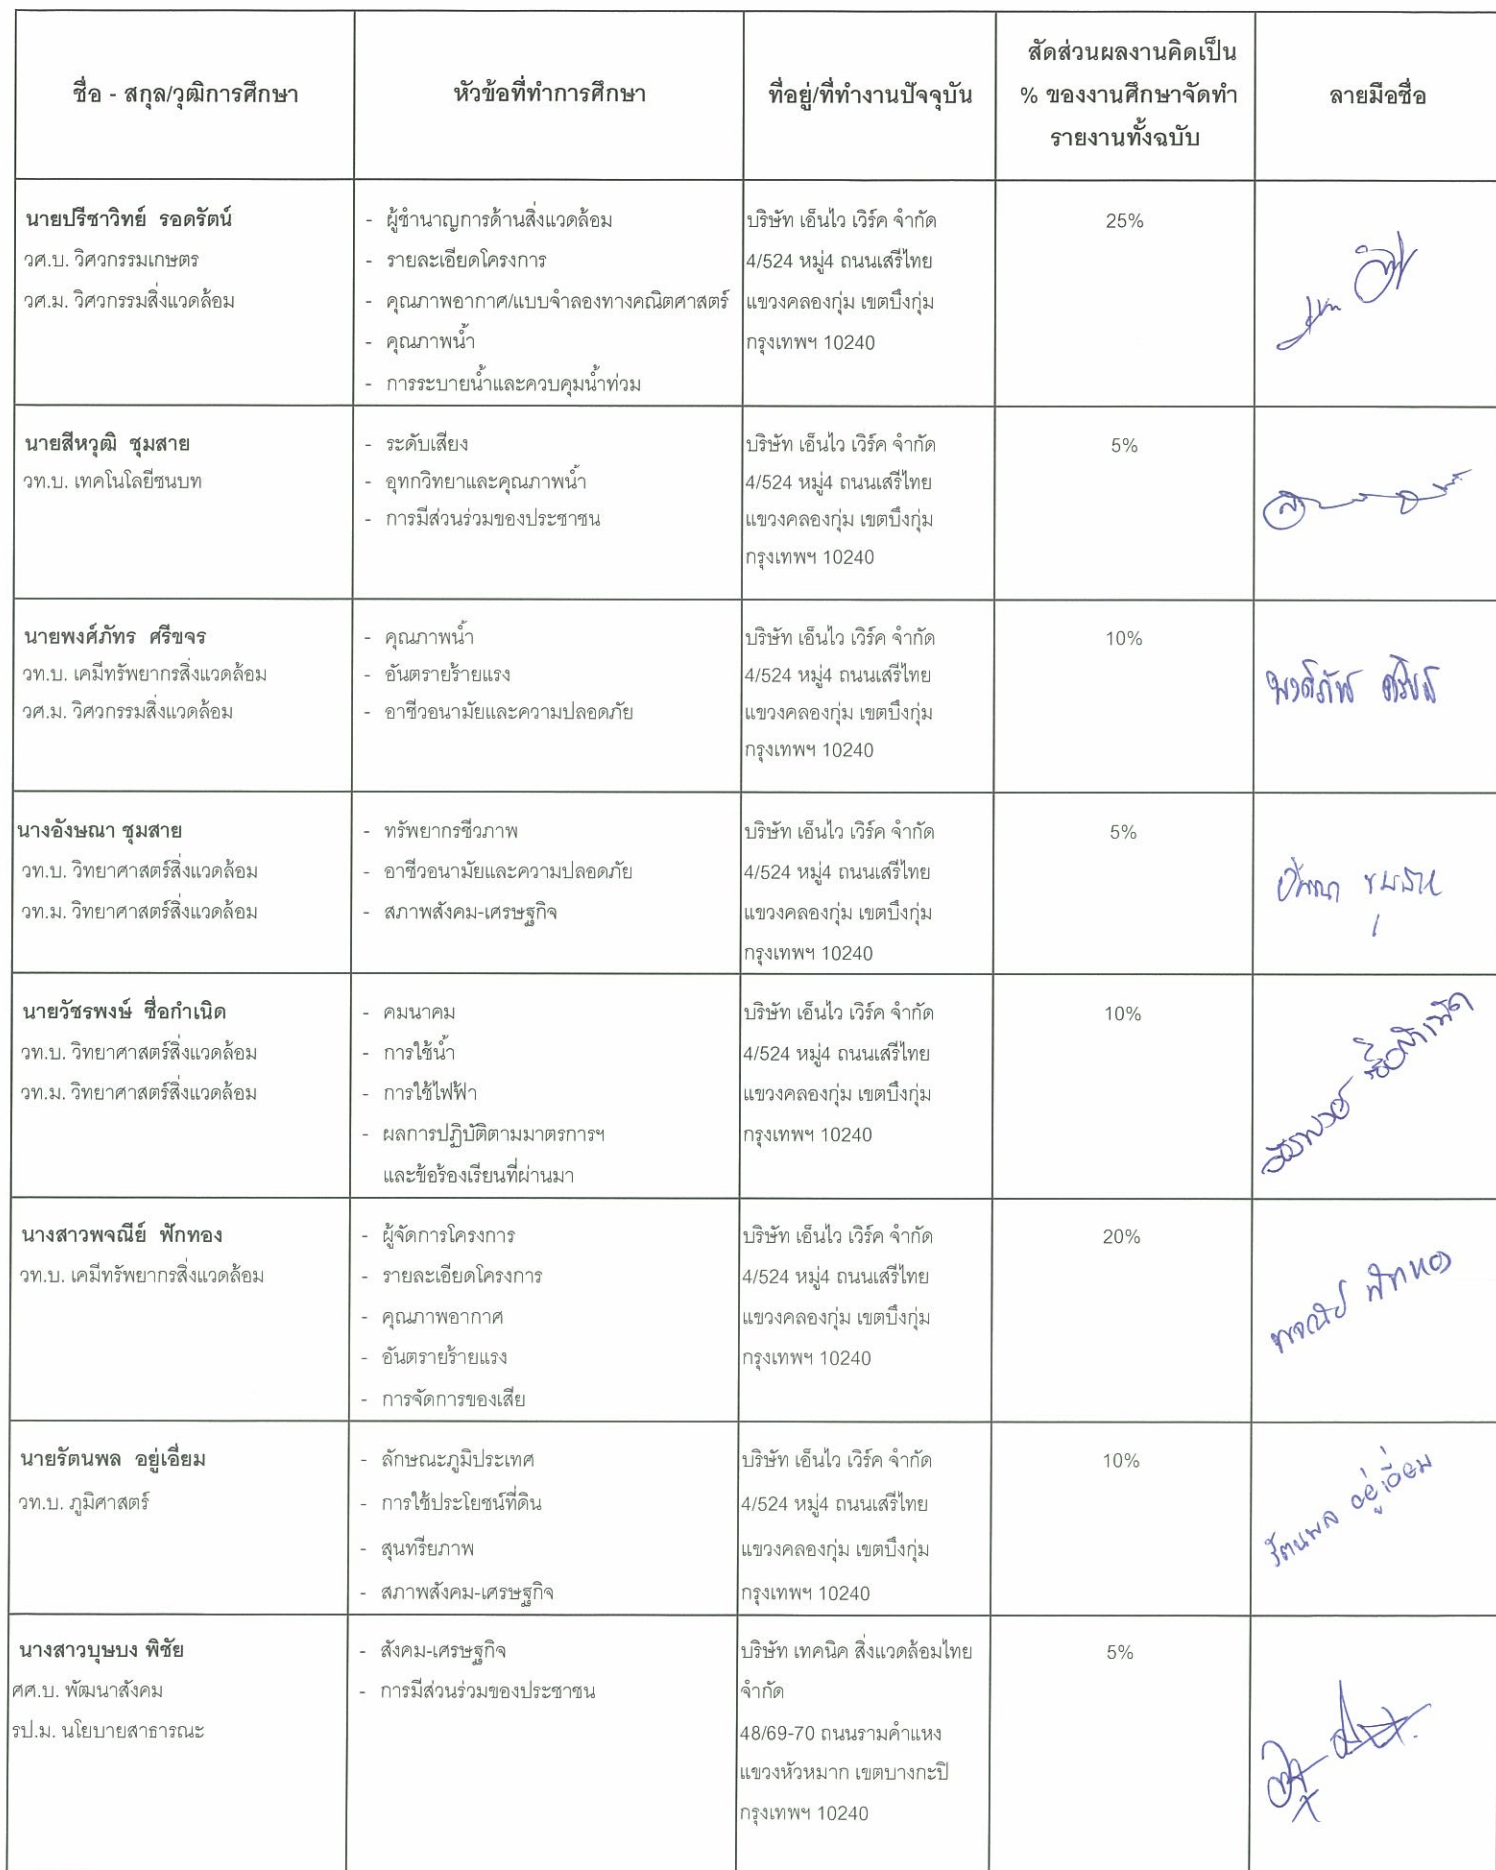 ชื่อ - สกุล/วุฒิการศึกษา
หัวข้อที่ทำการศึกษา
ที่อยู่/ที่ทำงานปัจจุบัน
สัดส่วนผลงานคิดเป็น
% ของงานศึกษาจัดทำ
รายงานทั้งฉบับ
ลายมือชื่อ
นายปรีชาวิทย์ รอดรัตน์
วศ.บ. วิศวกรรมเกษตร
วศ.ม. วิศวกรรมสิ่งแวดล้อม
- ผู้ชำนาญการด้านสิ่งแวดล้อม
- รายละเอียดโครงการ
- คุณภาพอากาศ/แบบจำลองทางคณิตศาสตร์
- คุณภาพน้ำ
- การระบายน้ำและควบคุมน้ำท่วม
บริษัท เอ็นไว เวิร์ค จำกัด
4/524 หมู่4 ถนนเสรีไทย
แขวงคลองกุ่ม เขตบึงกุ่ม
กรุงเทพฯ 10240
25%
นายสีหวุฒิ ชุมสาย
วท.บ. เทคโนโลยีชนบท
- ระดับเสียง
- อุทกวิทยาและคุณภาพน้ำ
- การมีส่วนร่วมของประชาชน
บริษัท เอ็นไว เวิร์ค จำกัด
4/524 หมู่4 ถนนเสรีไทย
แขวงคลองกุ่ม เขตบึงกุ่ม
กรุงเทพฯ 10240
5%
นายพงศ์ภัทร ศรีขจร
วท.บ. เคมีทรัพยากรสิ่งแวดล้อม
วศ.ม. วิศวกรรมสิ่งแวดล้อม
- คุณภาพน้ำ
- อันตรายร้ายแรง
- อาชีวอนามัยและความปลอดภัย
บริษัท เอ็นไว เวิร์ค จำกัด
4/524 หมู่4 ถนนเสรีไทย
แขวงคลองกุ่ม เขตบึงกุ่ม
กรุงเทพฯ 10240
10%
นางอังษณา ชุมสาย
วท.บ. วิทยาศาสตร์สิ่งแวดล้อม
วท.ม. วิทยาศาสตร์สิ่งแวดล้อม
- ทรัพยากรชีวภาพ
- อาชีวอนามัยและความปลอดภัย
- สภาพสังคม-เศรษฐกิจ
บริษัท เอ็นไว เวิร์ค จำกัด
4/524 หมู่4 ถนนเสรีไทย
แขวงคลองกุ่ม เขตบึงกุ่ม
กรุงเทพฯ 10240
5%
นายวัชรพงษ์ ซื่อกำเนิด
วท.บ. วิทยาศาสตร์สิ่งแวดล้อม
วท.ม. วิทยาศาสตร์สิ่งแวดล้อม
- คมนาคม
- การใช้น้ำ
- การใช้ไฟฟ้า
- ผลการปฏิบัติตามมาตรการฯ
และข้อร้องเรียนที่ผ่านมา
บริษัท เอ็นไว เวิร์ค จำกัด
4/524 หมู่4 ถนนเสรีไทย
แขวงคลองกุ่ม เขตบึงกุ่ม
กรุงเทพฯ 10240
10%
นางสาวพจณีย์ ฟักทอง
วท.บ. เคมีทรัพยากรสิ่งแวดล้อม
- ผู้จัดการโครงการ
- รายละเอียดโครงการ
- คุณภาพอากาศ
- อันตรายร้ายแรง
- การจัดการของเสีย
บริษัท เอ็นไว เวิร์ค จำกัด
4/524 หมู่4 ถนนเสรีไทย
แขวงคลองกุ่ม เขตบึงกุ่ม
กรุงเทพฯ 10240
20%
พจณีย์ ฟักทอง
นายรัตนพล อยู่เอี่ยม
วท.บ. ภูมิศาสตร์
- ลักษณะภูมิประเทศ
- การใช้ประโยชน์ที่ดิน
- สุนทรียภาพ
- สภาพสังคม-เศรษฐกิจ
บริษัท เอ็นไว เวิร์ค จำกัด
4/524 หมู่4 ถนนเสรีไทย
แขวงคลองกุ่ม เขตบึงกุ่ม
กรุงเทพฯ 10240
10%
รัตนพล อยู่เอี่ยม
นางสาวบุษบง พิชัย
ศศ.บ. พัฒนาสังคม
รป.ม. นโยบายสาธารณะ
- สังคม-เศรษฐกิจ
- การมีส่วนร่วมของประชาชน
บริษัท เทคนิค สิ่งแวดล้อมไทย
จำกัด
48/69-70 ถนนรามคำแหง
แขวงหัวหมาก เขตบางกะปิ
กรุงเทพฯ 10240
5%